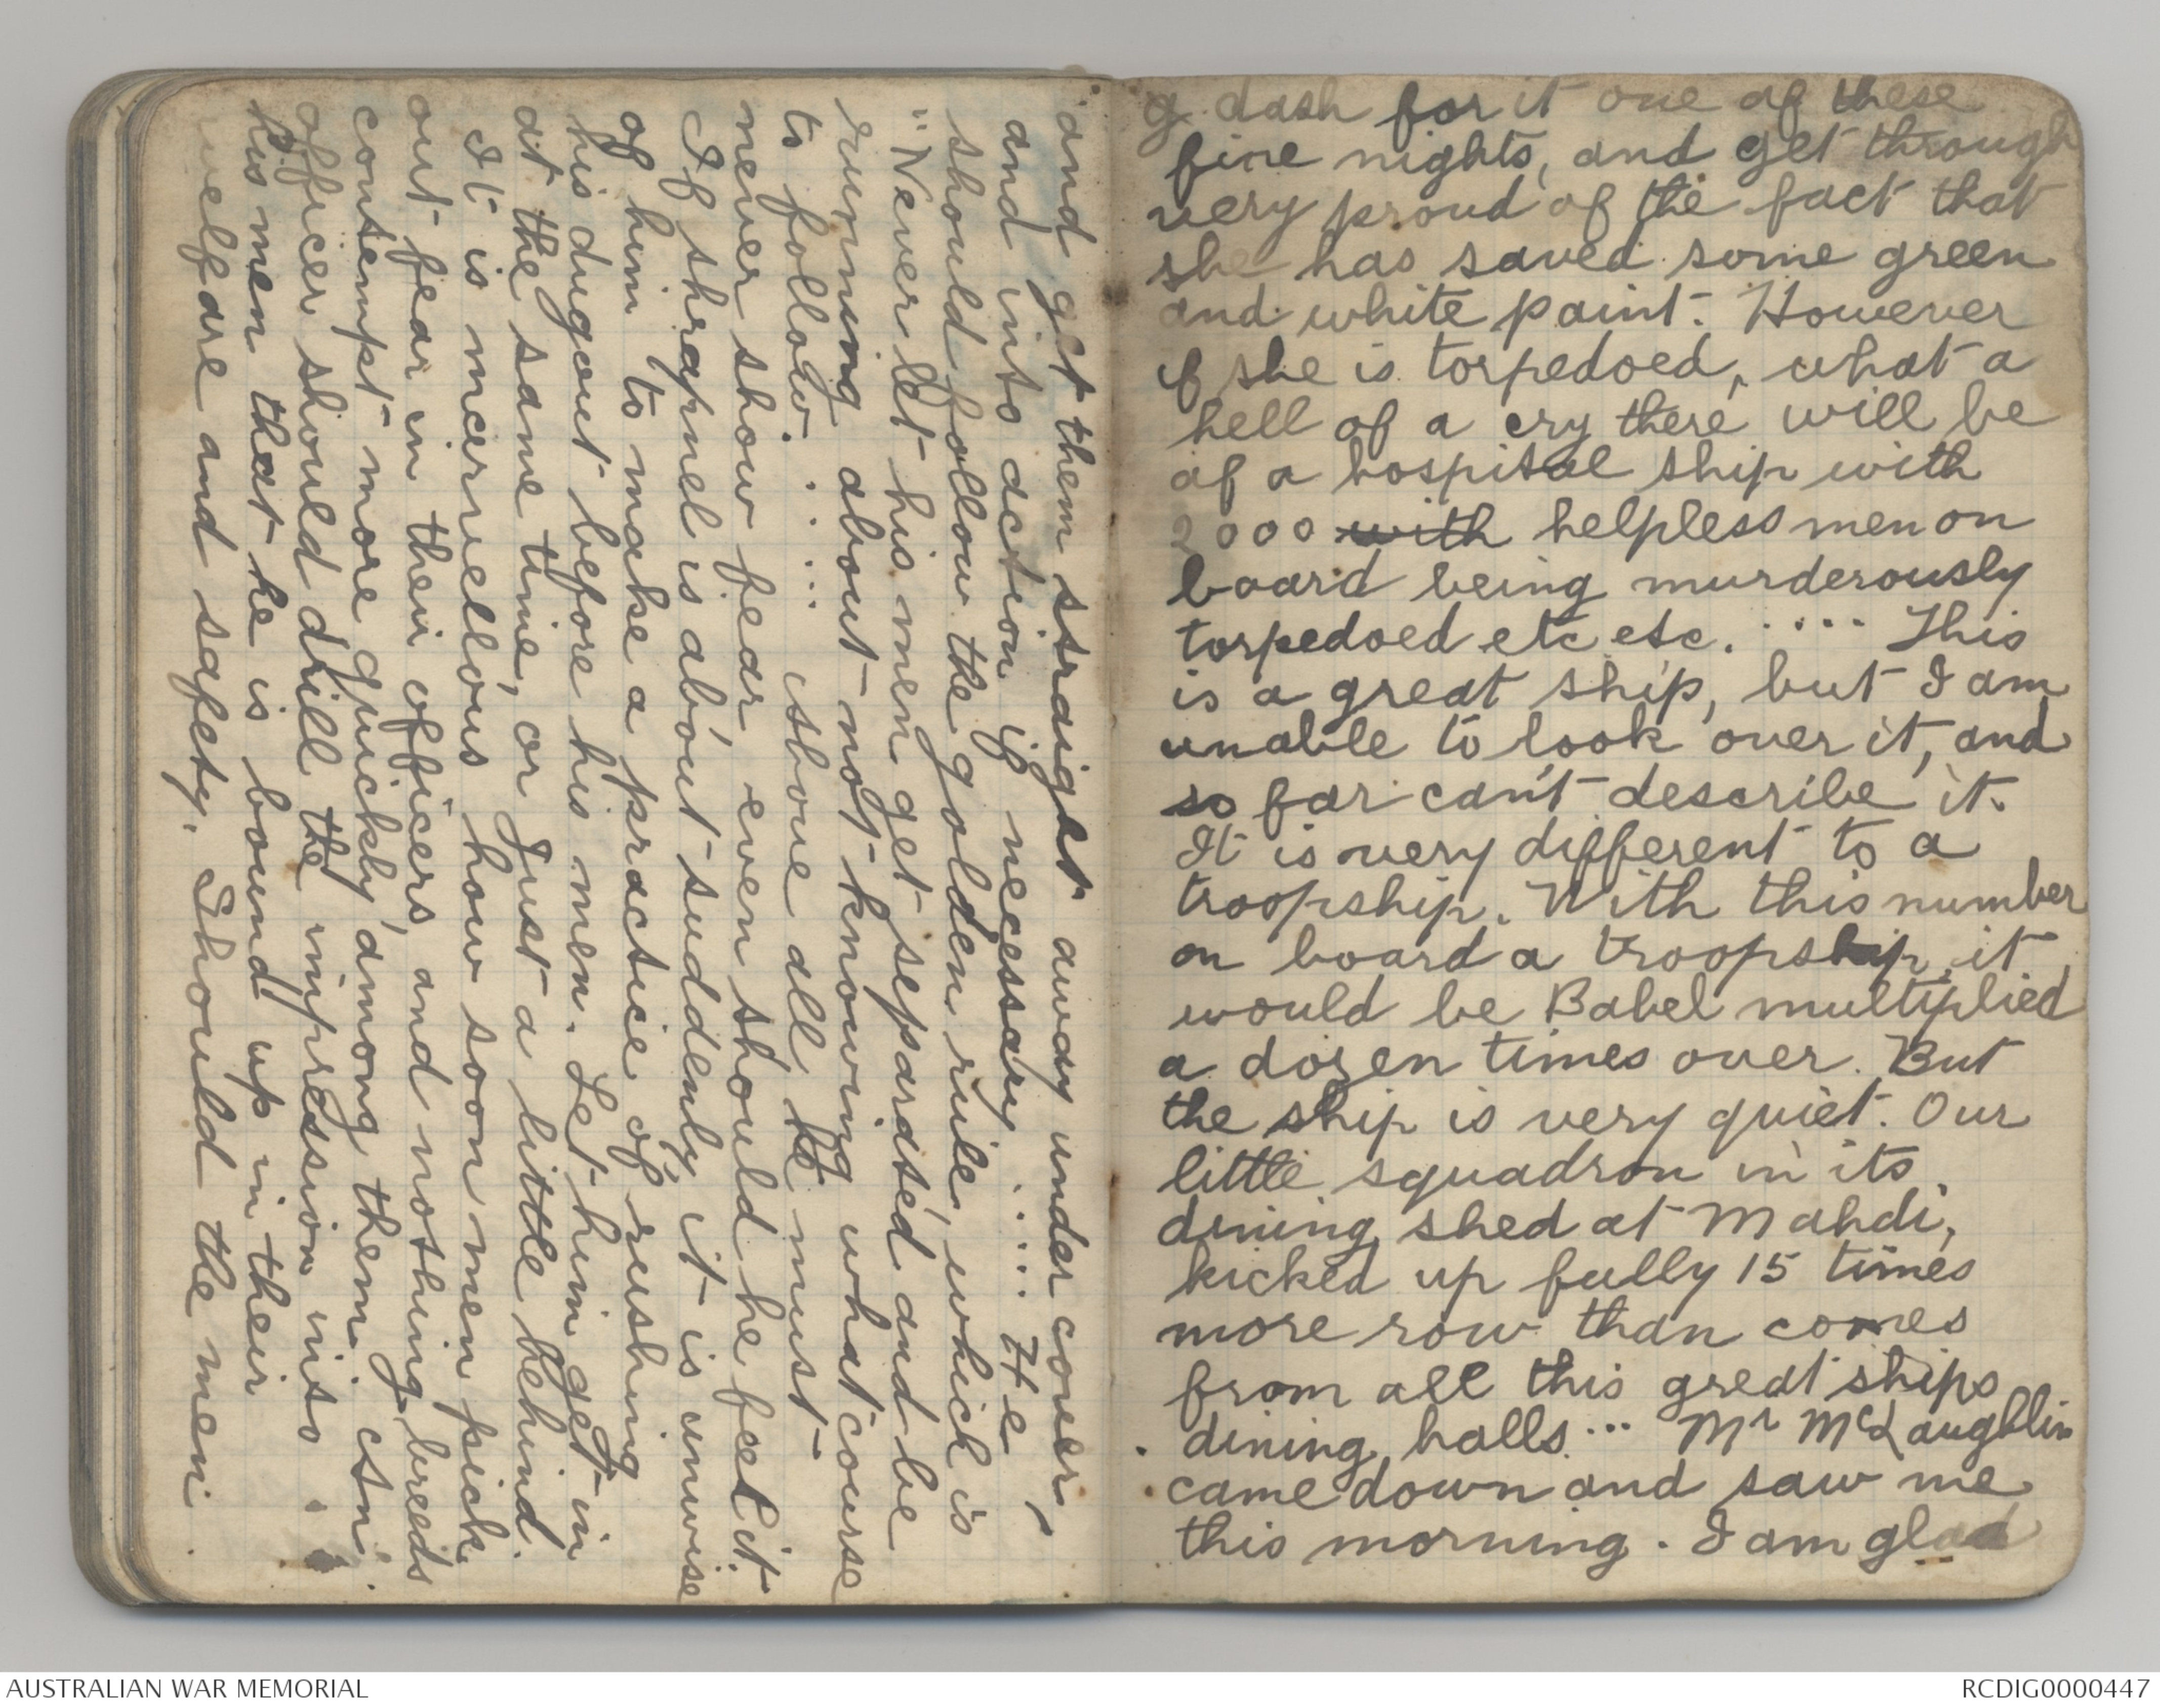 and get them straight away under cover,
and into action if necessary ..... He
should follow the golden rule, which is
"Never let his men get separated and be
running about not knowing what course
to follow. ..... above all, he must
never show fear, even should he feel it.
If shrapnel is about suddenly, it is unwise
of him to make a practice of rushing
his dugout before his men. Let him get in
at the same time, or just a little behind.
It is marvellous how soon men pick
out fear in their officers, and nothing breeds
contempt more quickly among them. an
officer should drill the impression into
his men that he is bound up in their
welfare and safety. Should the men
a dash for it one of these
fine nights, and get through
very proud of the fact that
she has saved some green
and white paint. However
if she is torpedoed, what a
hell of a cry there will be
of a hospital ship with
2000 with helpless men on
board being murderously
torpedoed etc etc. .... This
is a great ship, but I am
unable to look over it, and
so far can't describe it.
It is very different to a
troopship. With this number
on board a troopship, it
would be Babel multiplied
a dozen times over. But
the ship is very quiet. Our
little squadron in its
dining shed at Mahdi,
kicked up fully 15 times
more row than comes
from all this great ships
dining halls ... Mr McLaughlin
came down and saw me
this morning. I am glad
AUSTRALIAN WAR MEMORIAL
RCDIG0000447